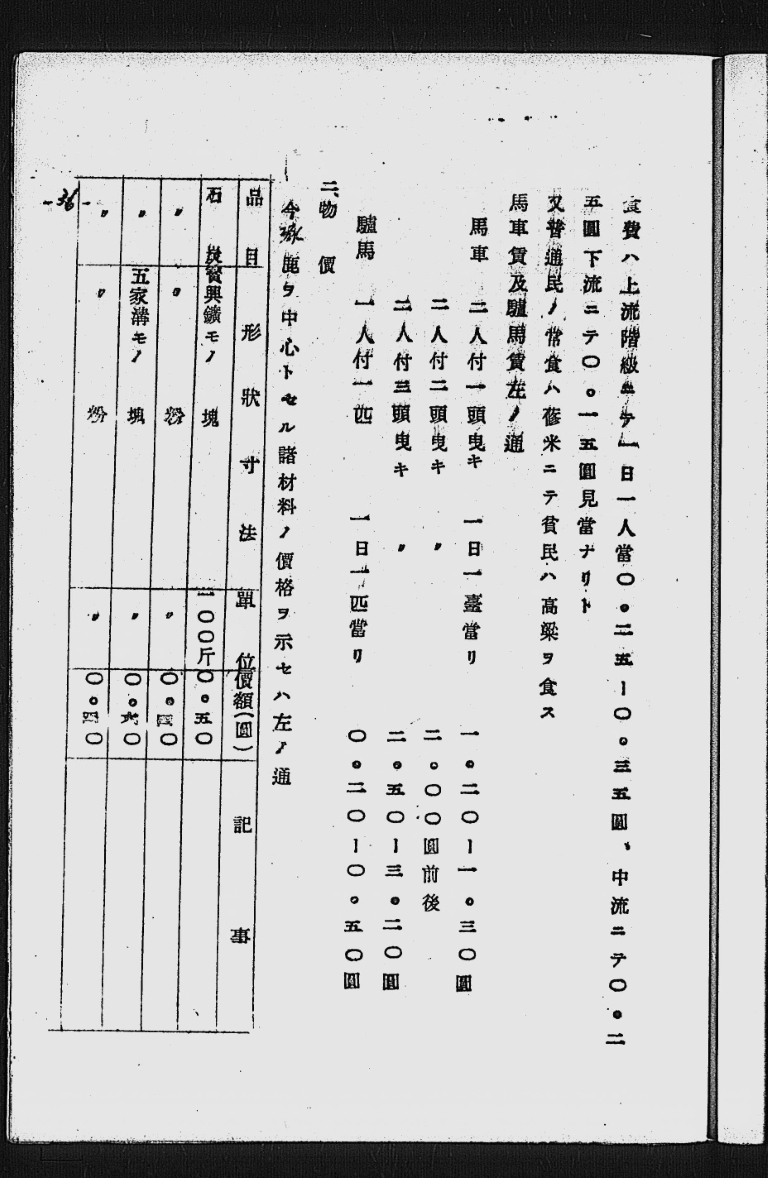 食費ハ上流階級ニテ一日一人當〇。二五―〇。三五圓、中流ニテ〇。二
五圓下流ニテ〇。一五圓見當ナリト
又普通民ノ常食ハ蓚米ニテ貧民ハ高粱ヲ食ス
馬車賃及驢馬賃左ノ通
馬車 二人付一頭曳キ 一日一臺當リ 一。二〇―一。三〇圓
二人付二頭曳キ 〃 二。〇〇圓前後
二人付三頭曳キ 〃 二。五〇―三。二〇圓
驢馬 一人付一匹 一日一匹當リ 〇。二〇―〇。五〇圓
二、物價
今涿鹿ヲ中心トセル諸材料ノ價格ヲ示セハ左ノ通
品目 形狀寸法 單位 價額(圓) 記事
石炭 寳興鑛モノ 塊 一〇〇斤 〇。五〇
〃 〃 粉 〃 〇。四〇
〃 五家溝モノ 塊 〃 〇。六〇
〃 〃 粉 〃 〇。四〇
-36-